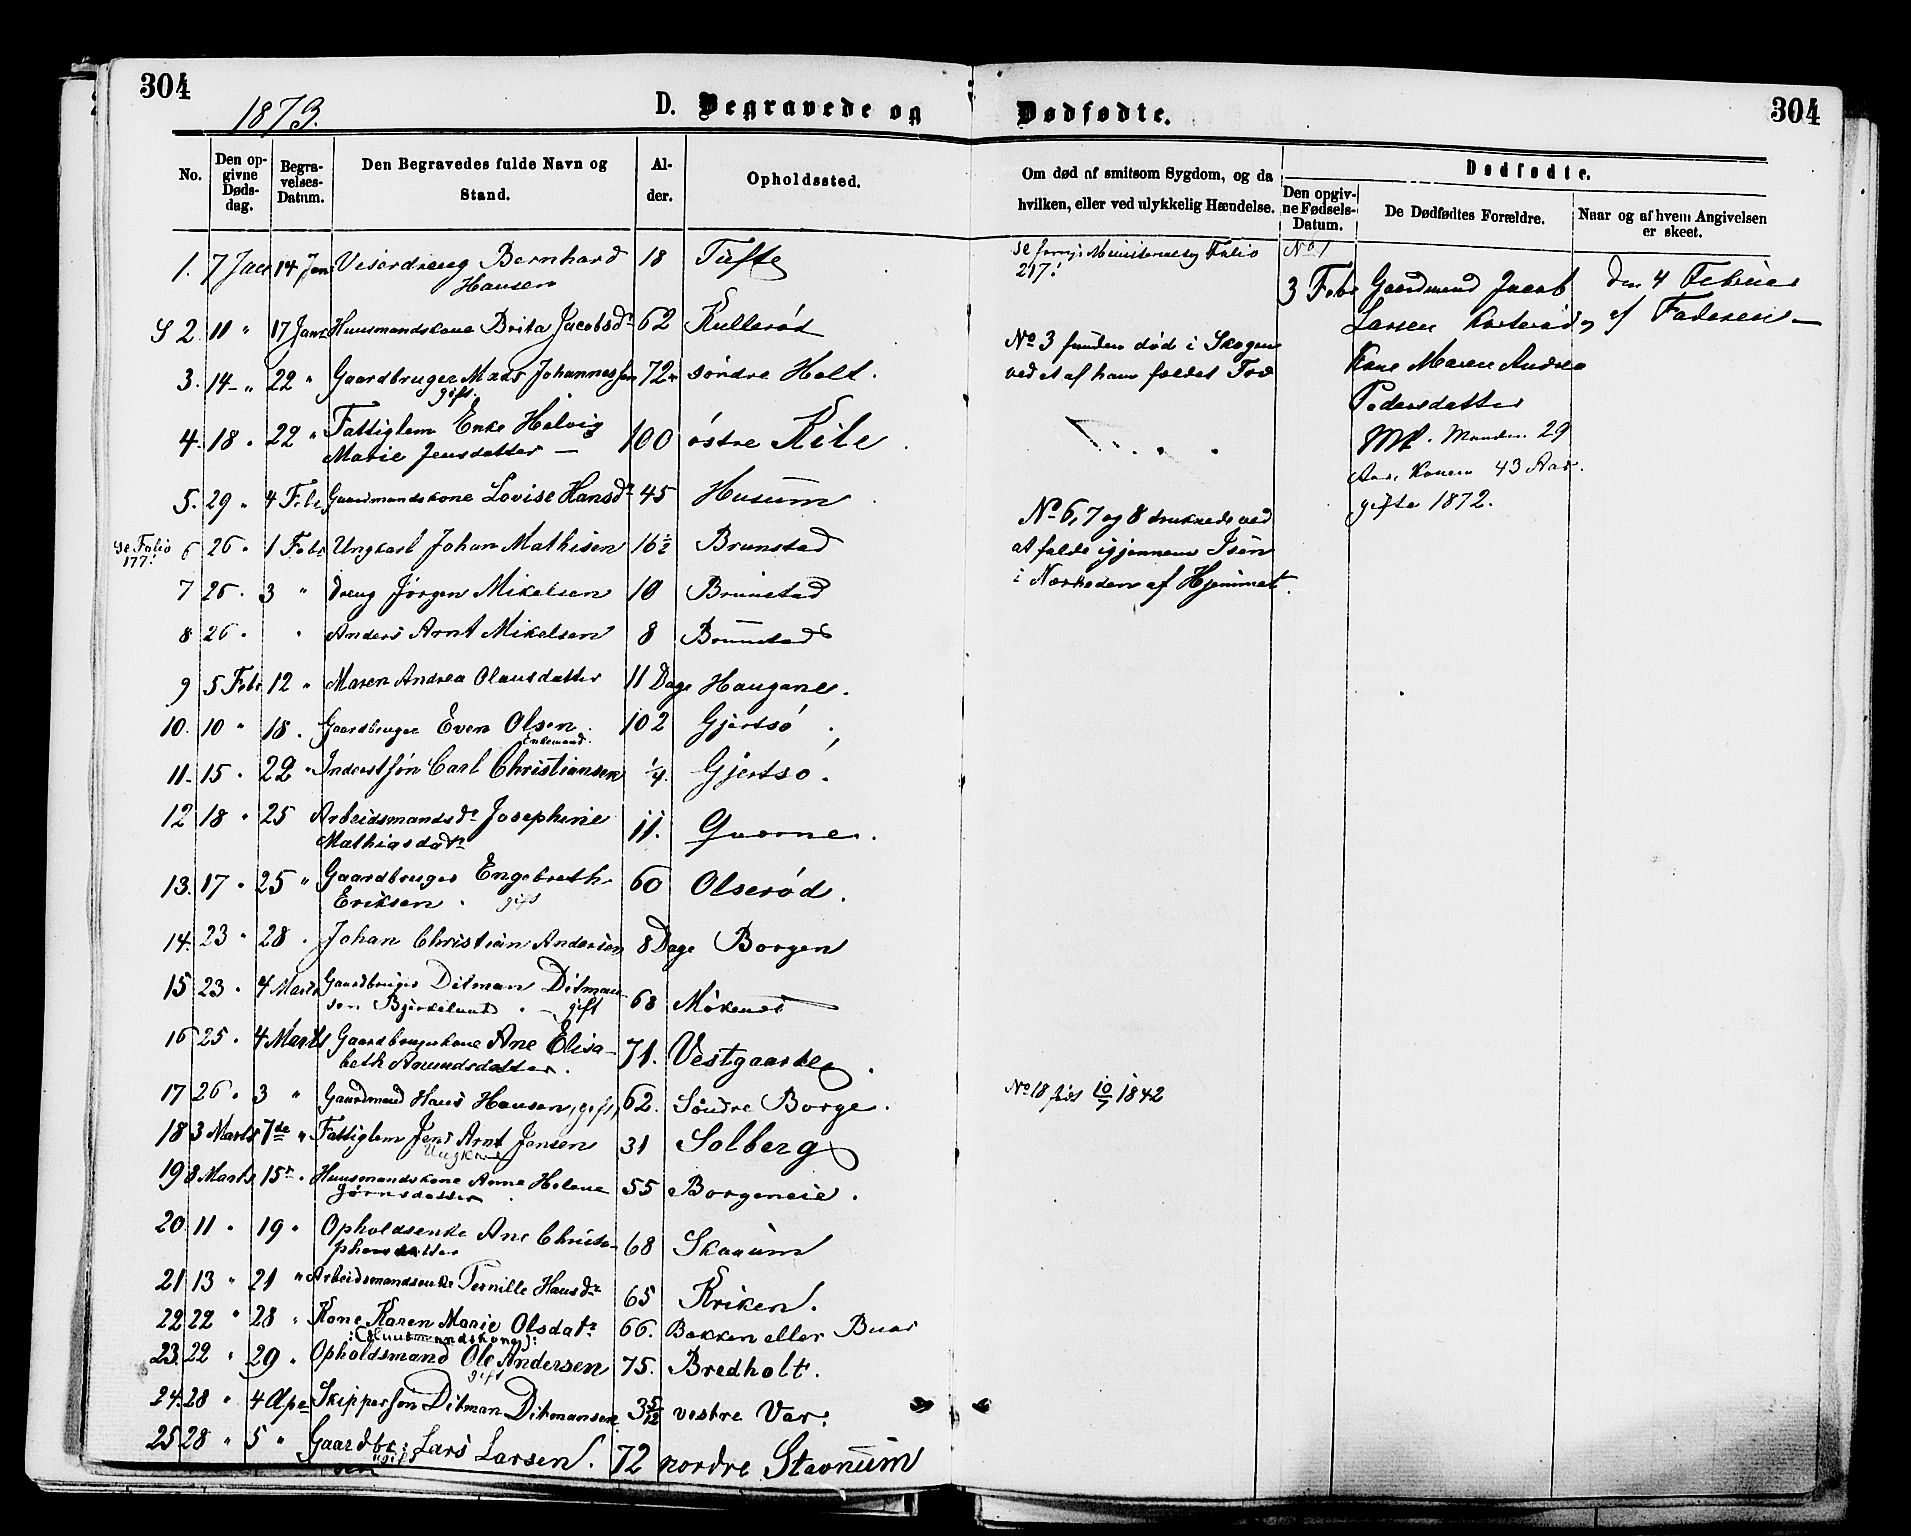 304
304
1873.
D. Begravede og
Dødfødte.
No.
Den opgivne Dødsdag.
Begravelses-Datum.
Den Begravedes fulde Navn og Stand.
Alder.
Opholdssted.
Om død af smitsom Sygdom, og da hvilken, eller ved ulykkelig Hændelse.
Dødfødte.
Den opgivne Fødsels-Datum.
De Dødfødtes Forældre.
Naar og af hvem Angivelsen er skeet.
1. 7 Jan 14 Jan Bernhard 18 Tufte
Hansen
S 2. 11 " 17 Janr Huusmandskone Brita Jacobsdr 62 Kullerød
3. 14 " 22 " Gaardbruger Mads Johannessen 72 søndre Holt.
gift.
4. 18 " 22 " Fattiglem Enke Helvig
Marie Jensdatter — 100 østre Kile
5. 29 " 4 Febr Gaardmandskone Lovise Hansdr 45 Husum
Se Folio 177! 6 26 " 1 Febr Ungkarl Johan Mathisen 16½ Brunstad
7 26 " 3 " Dreng Jörgen Mikelsen 10 Brunstad
8 26 " " Anders Arnt Mikelsen 8 Brunstad
9 5 Febr 12 " Maren Andrea Olausdatter 11 Dage Haugane.
10. 10 " 18. Gaardbruger Even Olsen. 102 Gjertsø.
Enkemand.
11. 15 " 22 " Inderstsøn Carl Christiansen ¼. Gjertsø.
12 18 " 25 Arbeidsmandsdr Josephine
Mathiasdatr 11. Qvorne.
13. 17 " 25 " Gaardbruger Engebreth
Eriksen. gift 60 Olserød.
14. 23 " 28. Johan Christian Andersen 8 Dage Borgen
15 23 " 4 Marts Gaardbruger Ditman Ditman-
sen Bjerkelund gift 68
16 25 " 4 Marts Gaardbrugerkone Ane Elisa-
beth Amundsdatter. 71. Vestgaarden.
17 26 " 3 " Gaardmand Hans Hansen, gift, 62. Søndre Borge.
18 3 Marts 7de " Fattiglem Jens Arnt Jensen 31 Solberg
Ungkarl
19 8 Marts 15de " Huusmandskone Anne Helene
Jörnsdatter 55 Borgeneie.
20 11 " 19 " Opholdsenke Ane Christo-
phersdatter 68 Skanum
21 13 " 21 " Arbeidsmandsenke Pernille Hansdr 65 Kriken.
22 22 " 28 " Kone Karen Marie Olsdatr 66. Bakken eller Buar
:(Huusmandskone):
23. 22 " 29 " Opholdsmand Ole Andersen 75. Bredholt.
gift
24. 28 " 4 Apr Skippersøn Ditman Ditmansen 3 5/12 vestre Var.
25 28 " 5 " Gaardbr: Lars Larsen. 72 nordre Stavnum
gift
Se Ministerialbog Folio
217!
No 3 funden død i Skogen
ved et af ham fældet Træ
No 6, 7 og 8 druknede ved
at falde igjennem Isen
i Nærheden af Hjemmet.
No 18 født 10/7 1842
No 1
3 Febr Gaardmand Jacob
Larsen og
Kone Maren Andrea
Pedersdatter
Manden 29
Aar, Konen 43 Aar.
gifte 1872.
Den 4 Februar
af Faderen —